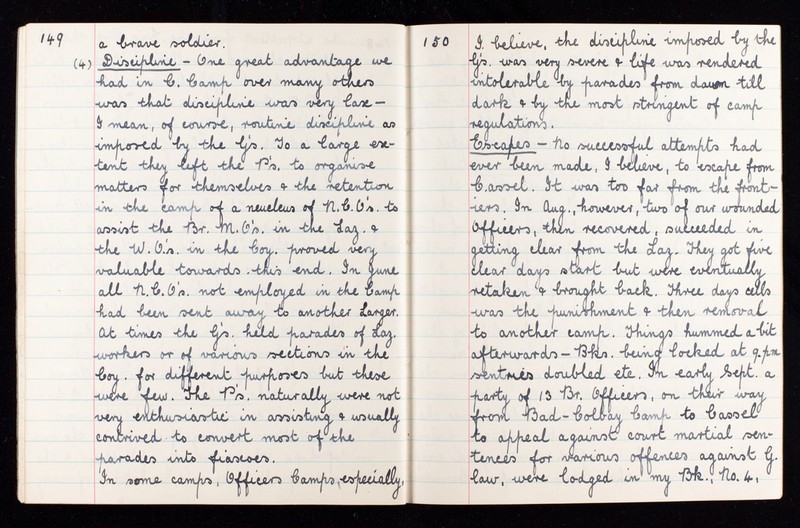 149
a brave soldier.
(4) Discipline – One great advantage we
had in C. Camp over many others
was that discipline was very lax –
I mean, of course, routine discipline as
imposed by the G's. To a large ex-
tent they left the P's. to organise
matters for themselves & the retention
in the camp of a neucleus of N.C.O's. to
assist the Br. M.O's. in the Laz. &
the W.O's. in the Coy. proved very
valuable towards this end. In June
all N.C.O's. not employed in the Camp
had been sent away to another Larger.
At times the G's. held parades of Laz.
workers or of various sections in the
Coy. for different purposes but these
were few. The P's. naturally were not
very enthusiastic in assisting & usually
contrived to convert most of the
parades into fiascoes.
In some camps, Officers Camps, especially,
150
I believe, the discipline imposed by the
G's. was very severe & life was rendered
intolerable by parades from dawn till
dark & by the most stringent of camp
regulations.
Escapes – No successful attempts had
ever been made, I believe, to escape from
Cassel. It was too far from the front-
iers. In Aug., however, two of our wounded
Officers, then recovered, succeeded in
getting clear from the Laz. They got five
clear days start but were eventually
retaken & brought back. Three days cells
was the punishment & then removal
to another camp. Things hummed a bit
afterwards – Bks. being locked at 9.pm
sentries doubled etc. In early Sept. a
party of 13 Br. Officers, on their way
from Bad-Colbay Camp to Cassel
to appeal against court martial sen-
tences for various offences against G.
law, were lodged in my Bk., No. 4,